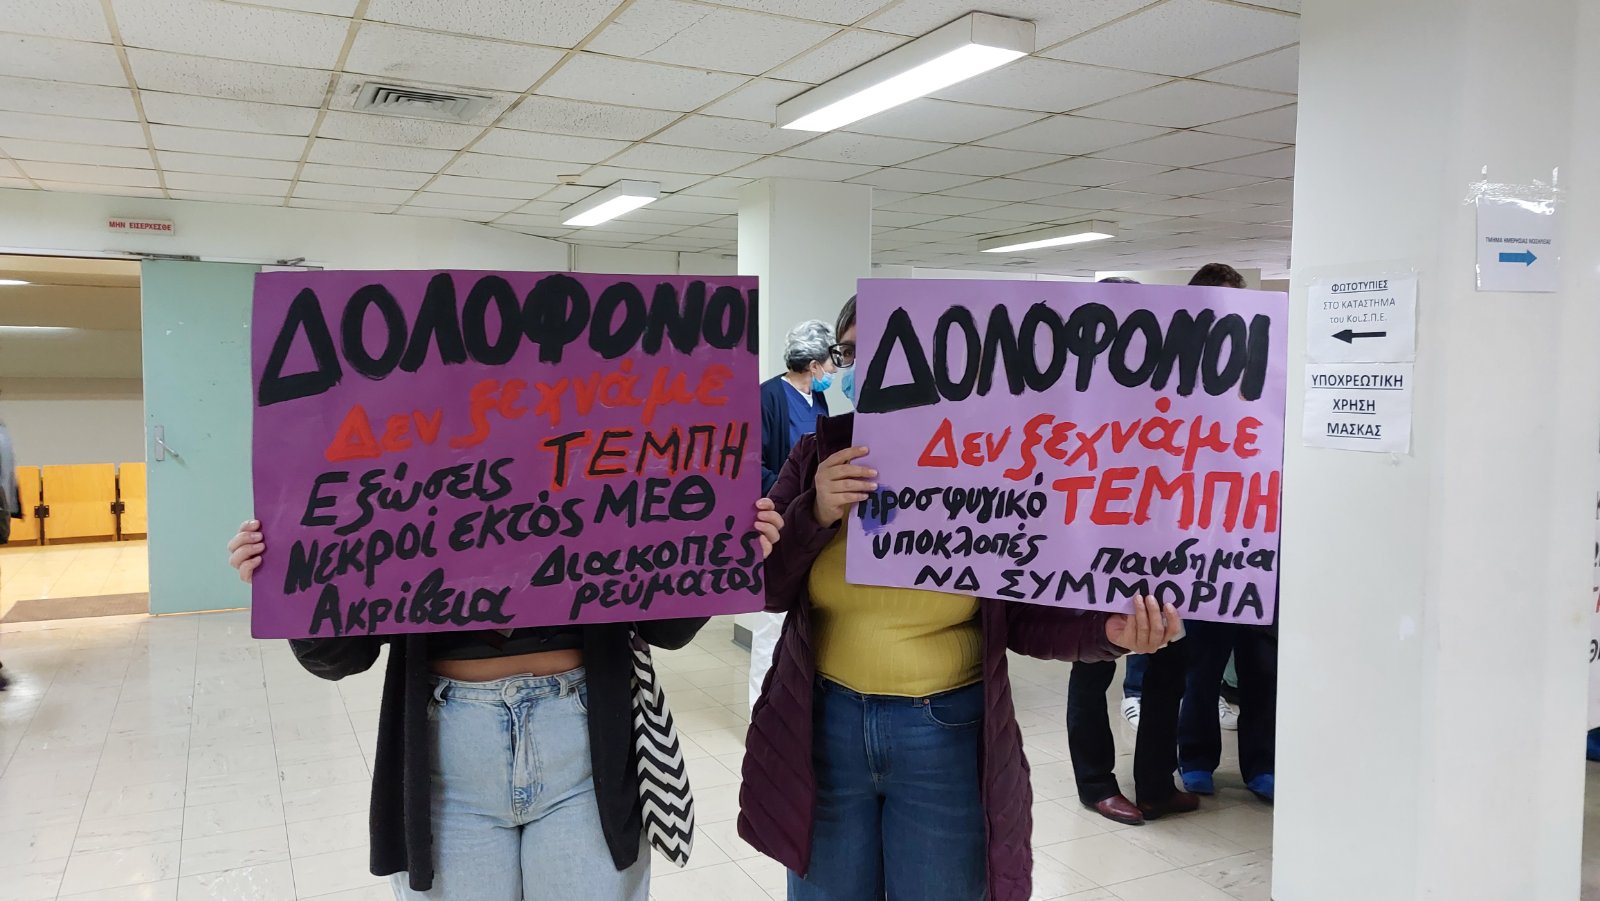 ΜΗΝ ΕΙΣΕΡΧΕΣΘΕ
ΔΟΛΟΦΟΝΟΙ
Δεν ξεχνάμε
ΤΕΜΠΗ
Εξώσεις
Νεκροί εκτός ΜΕΘ
Διακοπές
ρεύματος
Ακρίβεια
ΔΟΛΟΦΟΝΟΙ
Δεν ξεχνάμε
προσφυγικό ΤΕΜΠΗ
υποκλοπές πανδημία
ΝΔ ΣΥΜΜΟΡΙΑ
ΤΜΗΜΑ ΗΜΕΡΗΣΙΑΣ ΝΟΣΗΛΕΙΑΣ
ΦΩΤΟΤΥΠΙΕΣ
ΣΤΟ ΚΑΤΑΣΤΗΜΑ
του Κοι.Σ.Π.Ε.
ΥΠΟΧΡΕΩΤΙΚΗ
ΧΡΗΣΗ
ΜΑΣΚΑΣ